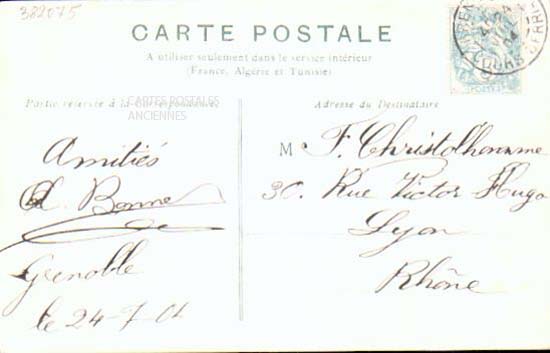 382075
CARTE POSTALE
A utiliser seulement dans le service intérieur
(France, Algérie et Tunisie)
Partie réservée à la Correspondance
CARTES POSTALES
ANCIENNES
Amitiés
Grenoble
le 24-7-04
Adresse du Destinataire
M F. Christolhomme
30. Rue Victor Hugo
Lyon
Rhône
POSTES